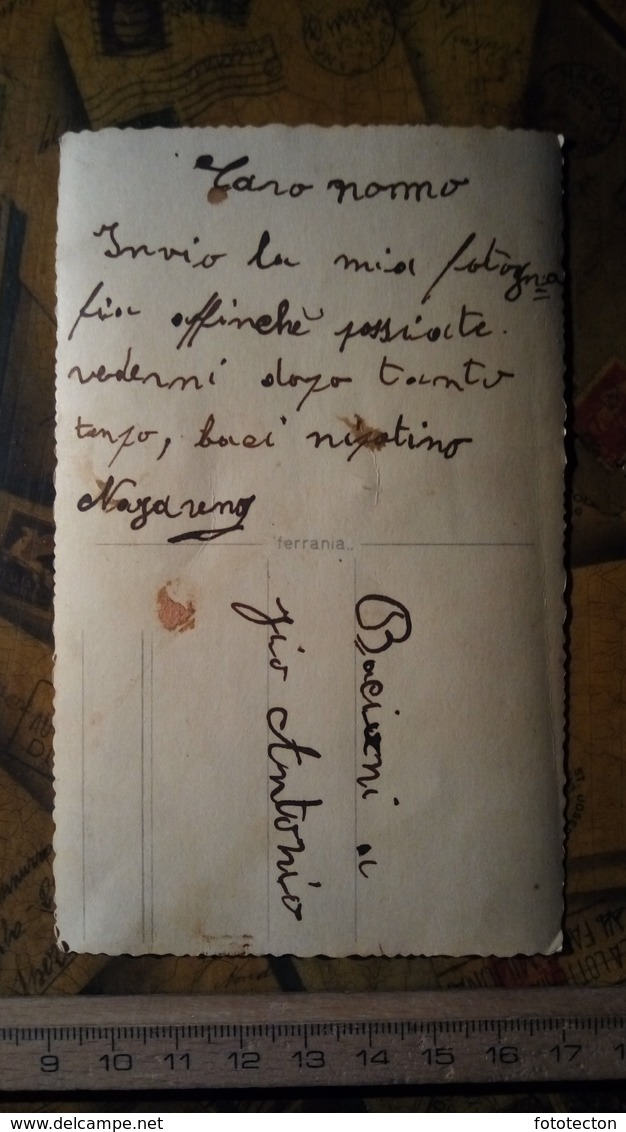 Caro nonno
Invio la mia fotogra=
fia affinchè possiate
vedermi dopo tanto
tempo, baci nipotino
Nazareno
ferrania..
Bacioni a
zio Antonio
9 10 11 12 13 14 15 16 17 1
fototecton